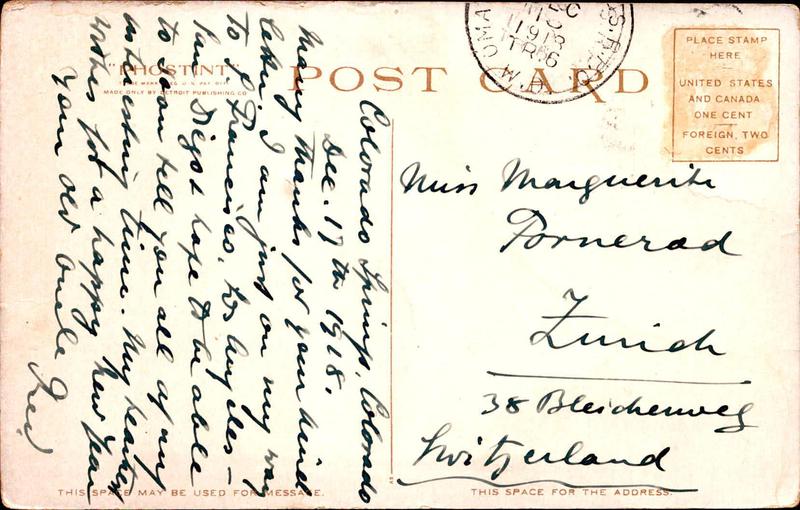 "PHOSTINT"
MADE ONLY BY DETROIT PUBLISHING CO.
POST CARD
PLACE STAMP
HERE
UNITED STATES
AND CANADA
ONE CENT
FOREIGN, TWO
CENTS
Colorado Springs, Colorado
Dec. 17th 1918.
Many thanks for your kind
letter. I am just on my way
to S. Francisco, Los Angeles –
San Diego & hope to be able
to soon tell you all of my
interesting time. My heartiest
wishes for a happy New Year
Your old Uncle
Fred
Miss Marguerite
Fornerod
Zurich
38 Bleicherweg
Switzerland
THIS SPACE MAY BE USED FOR MESSAGE.
THIS SPACE FOR THE ADDRESS.